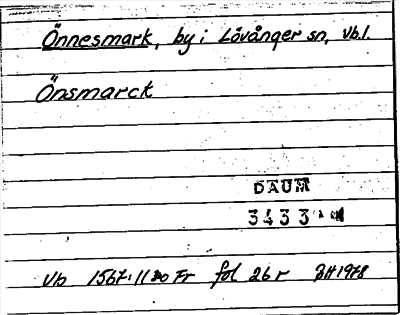 Önnesmark, by i Lövånger sn, Vb.l.
Önsmarck
DAUM
3433
Vb 1567:11 Fr fol 26 r BH 1978